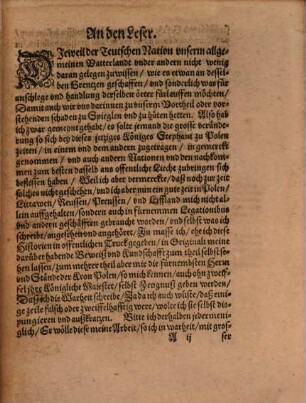 An den Leser.
DJeweil der Teutschen Nation vnserm allge-
meinen Vatterlandt vnder andern nicht wenig
daran gelegen zuwissen / wie es etwan an dessel-
ben Grentzen geschaffen / vnd sonderlich was für
anschlege vnd handlung derselben örter fürlauffen möchten /
Damit auch wir vns darinnen zu vnserm Vortheil oder vor-
stehenden schaden zu Spieglen vnd zu hüten hetten. Also hab
ich zwar gemeynt gehabt / es solte jemand die grosse verände-
rung so sich bey diesen jetzigen Königes Stephani zu Polen
zeiten / in einem vnd dem andern zugetragen / in gemerckt
genommen / vnd auch andern Nationen vnd den nachkom-
men zum besten dasselb ans offentliche Liecht zubringen sich
beflissen haben / Weil ich aber vermercke / daß noch zur zeit
solches nicht geschehen / vnd ich aber nun ein gute zeit in Polen /
Littawen / Reussen / Preussen / vnd Liffland mich nicht al-
lein auffgehalten / sondern auch in fürnemen Legationibus
vnd andern geschäfften gebraucht worden / vnd selbst was ich
schreibe / angesehen vnd angehöret / In masse ich / ehe ich diese
Historien in offentlichen Truck gegeben / in Originali meine
darüber habende Beweiß vnd Kundschafft zum theil selbst se-
hen lassen / zum mehrer theil aber mir die fürnembsten Herrn
vnd Stände der Kron Polen / so mich kennen / auch ohn zweif-
fel jhre Königliche Maiestet / selbst Zeugnuß geben werden /
Daß ich die Warheit schreibe / Ja da ich auch wüste / daß eini-
ge zeile falsch oder zweiffelhafftig were / wolte ich sie selbst dis-
pungieren vnd außkratzen. Bitte ich derhalben jeder meni-
glich / Er wölle diese meine Arbeit / so ich in warheit / mit gros-
A ij
ser